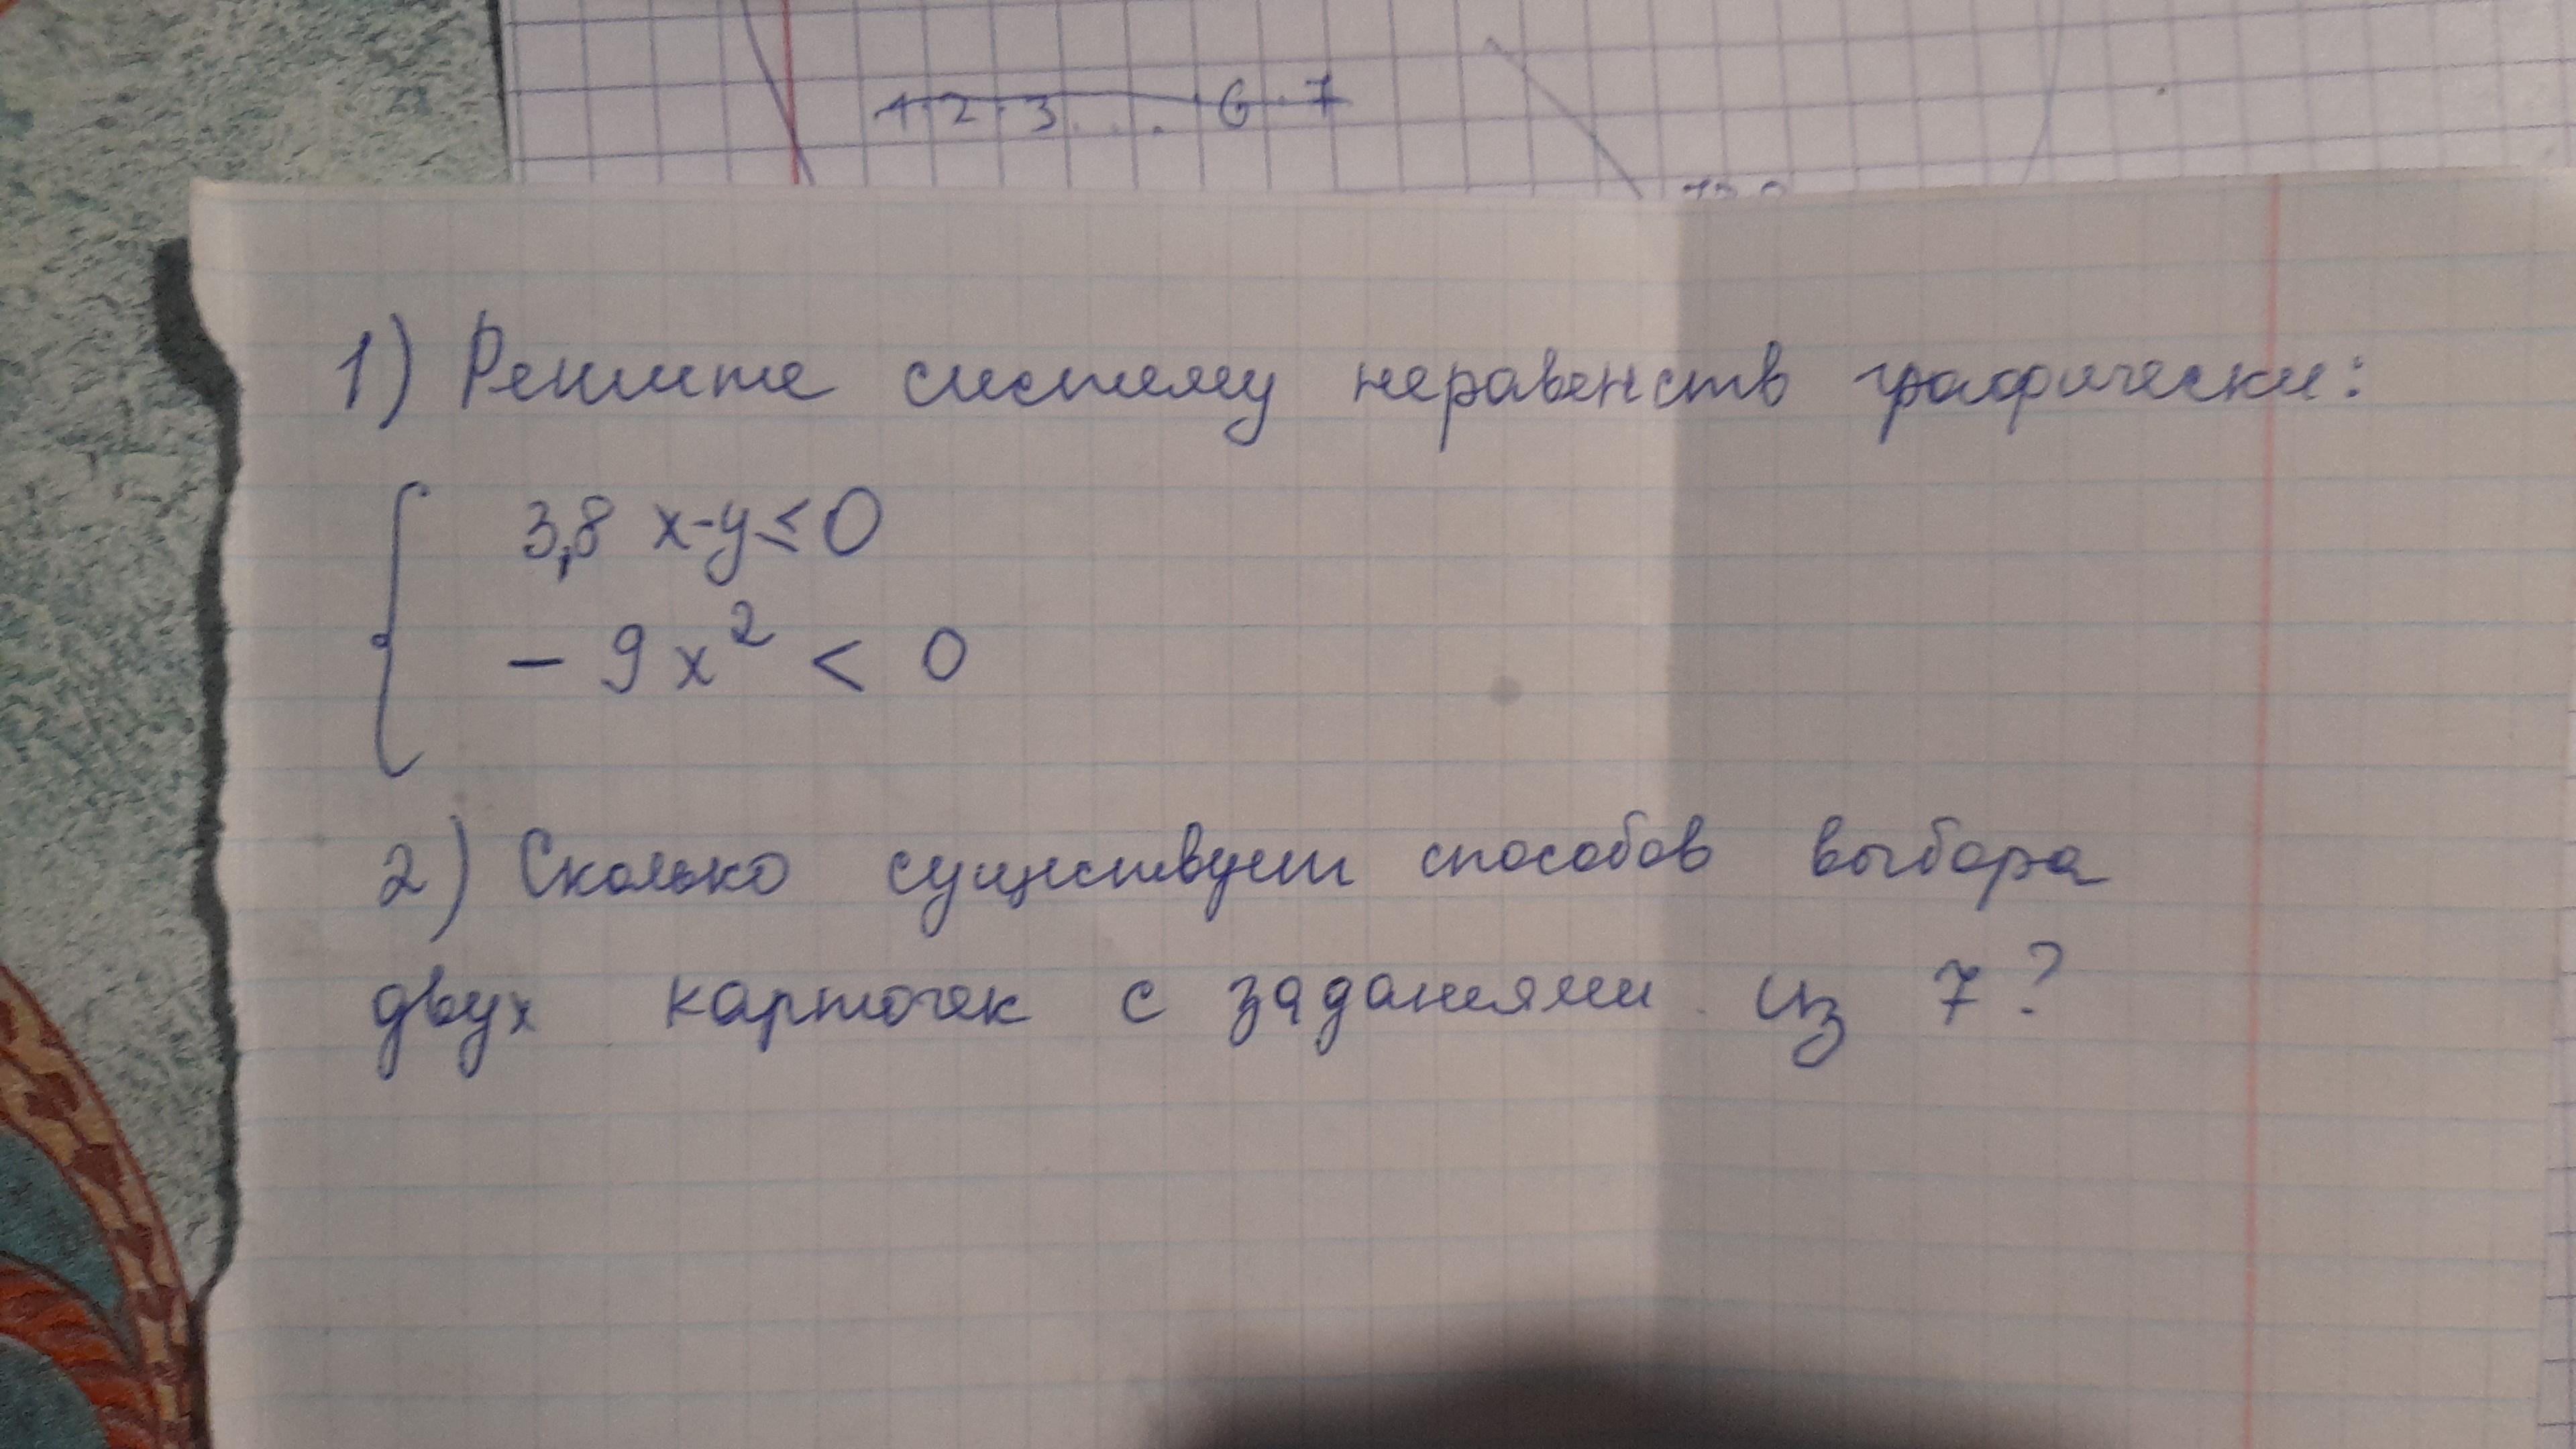 1·2·3....·6·7
1) Решите систему неравенств графически:
3,8 x-y≤0
- 9x² < 0
2) Сколько существует способов выбора
двух карточек с заданиями из 7?